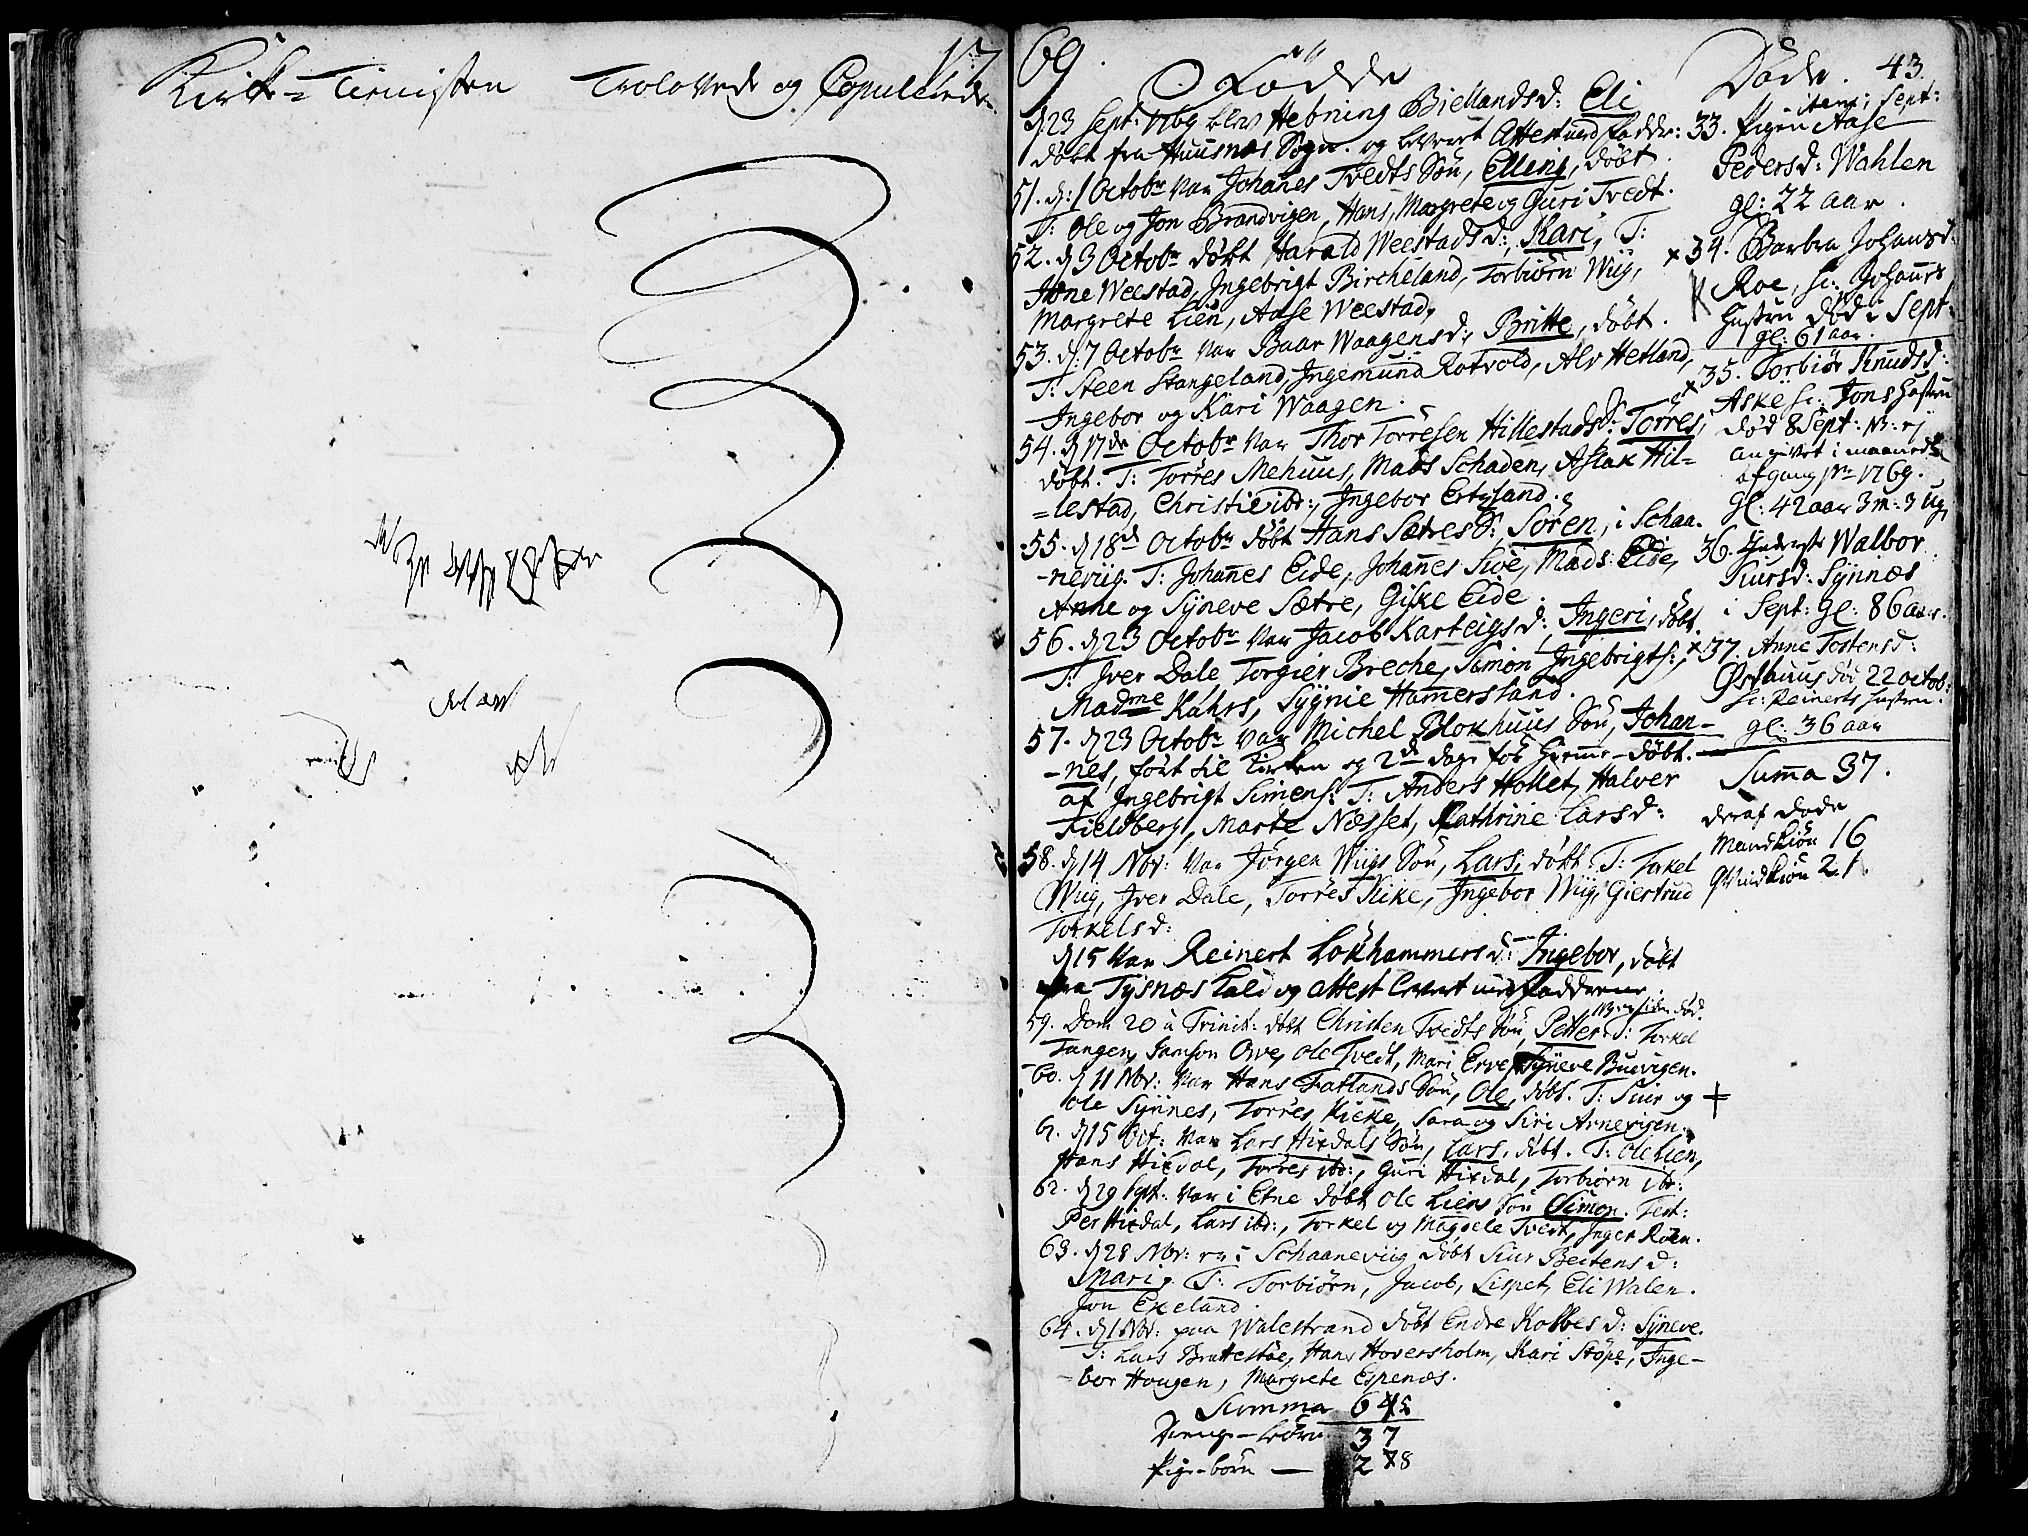 Kirke-Tienisten Troloved og Copulerede
17
69.
43.
Födde
d 23 Sept: 1769 blev Hebning Biellandsd: Eli
döbt fra Huusnæs Sogn. og levert Attest Faddr:
51. d: 1 Octobr var Johañes Tvedts Sön, Elling, döbt.
T: Ole og Jon Brandvigen, Hans, Margrete og Guri Tvedt.
52. d 3 Octobr döbt Harald Weestads d:, Kari, T:
Jone Weestad, Ingebrigt Bircheland, Torbiörn Wiig,
Margrete Lien, Aase Weestad,
53. d: 7 Octobr var Baar Waagens d:, Britte, döbt.
T: Steen Stangeland, Ingemund Rotvold, Alv Hetland,
Ingebor og Kari Waagen.
54. d 17de Octobr var Thor Torresen Hillestads S: Torres,
döbt. T: Torres Mehuus, Mads Schaden, Aslak Hil=
=lestad, Christi ibd:, Ingebor Ertzland.
55. d 18d Octobr döbt Hans Sætres S: Sören, i Schaa-
-neviig. T: Johañes Eide, Johañes Sive, Mads Eide,
Anne og Syneve Sætre, Giske Eide.
56. d 23 Octobr var Jacob Karteigs d:, Ingeri, döbt
T: Iver Dale Torgier Breche, Simon Ingebrigts:,
Madme Kahrs, Sygnie Hamersland.
57. d 23 Octobr var Michel Blokhuus Sön, Johan-
-nes, fört til Kirken og 2de dage för hieme-döbt.
af Ingebrigt Simens: T: Anders Hollet, Halver
Fieldberg, Marte Næsset, Kathrine Larsd:
58. d 14 Nov: var Jörgen Wiigs Sön, Lars, döbt. T: Torkel
Wiig, Iver Dale, Torres Kike, Ingebor Wiig, Giertrud
Torkelsd:
d 15 var Reinert Lokhammersd: Ingebor, döbt
fra Tysnæs Kald og Attest levert Fadderne.
59. Dom 20 à Trinit: döbt Christen Tvedts Sön, Petter. T: Torkel
Tangen, Samson Owe, Ole Tvedt, Mari Erve, Syneve Buevigen.
60. d 11 Nov: var Hans Fatlands Sön, Ole, döbt. T: Siur og
Ole Synnes, Torres Kicke, Sara og Siri Arnevigen.
61. d 15 Oct: var Lars Hixdals Sön, Lars, döbt. T: Ole Lien,
Hans Hixdal, Torres ibd:, Guri Hixdal, Torbiorn ibd:
62. d 29 Sept: var i Etne döbt Ole Liens Sön Simon. Test:
Per Hixdal, Lars ibd:, Torkel og Magdele Tvedt, Inger Röen.
63. d 28 Nov: i Schaaneviig döbt Siur Beitens d:
Mari. T: Torbiörn, Jacob, Lispet, Eli Walen.
Jon Exeland.
64. d 1 Nov: paa Walestrand döbt Endre Kobbes d: Syneve.
T: Lars Brattestöe, Hans Hoversholm, Kari Stöpe, Inge-
-bor Hougen, Margrete Espenæs.
Summa 64 5
Drenge-börn 37
Pige-börn — 2 8
Döde.
33. Pigen Aase
Pedersd: Wahlen
gl: 22 aar.
34. Barbra Johansd:
Roe, sc: Johañes
Hustru död i Sept:
gl: 61 aar.
35. Torbiör Knudsd:
Aske sc: Jons Hustru
död 8 Sept:
angivet i maaneds
afgang 1769.
gl: 42 aar 3 m: 3 ug,
36. Walbor
Siursd: Synnæs
i Sept: gl: 86 aar.
37. Anne Tostensd:
Östhuus död 22 octob:
sc: Reinerts Hustru.
gl: 36 aar
Suma 37.
deraf döde
Mandkiön 16
Qvindkiön 21.